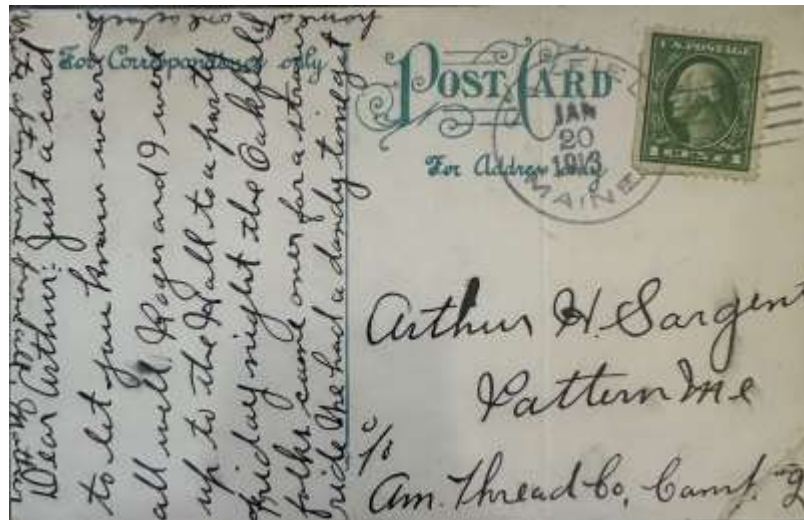 For Correspondence only
POST CARD
For Address only
JAN
20
1913
MAINE
Dear Arthur: Just a card
to let you know we are
all well Roger and I were
up to the Hall to a party
Friday night the Oakfield
folks came over for a straw
ride We had a dandy time got
home at
one o'clock.
Arthur H. Sargent
Pattern Me
c/o
Am. Thread Co, Camp.